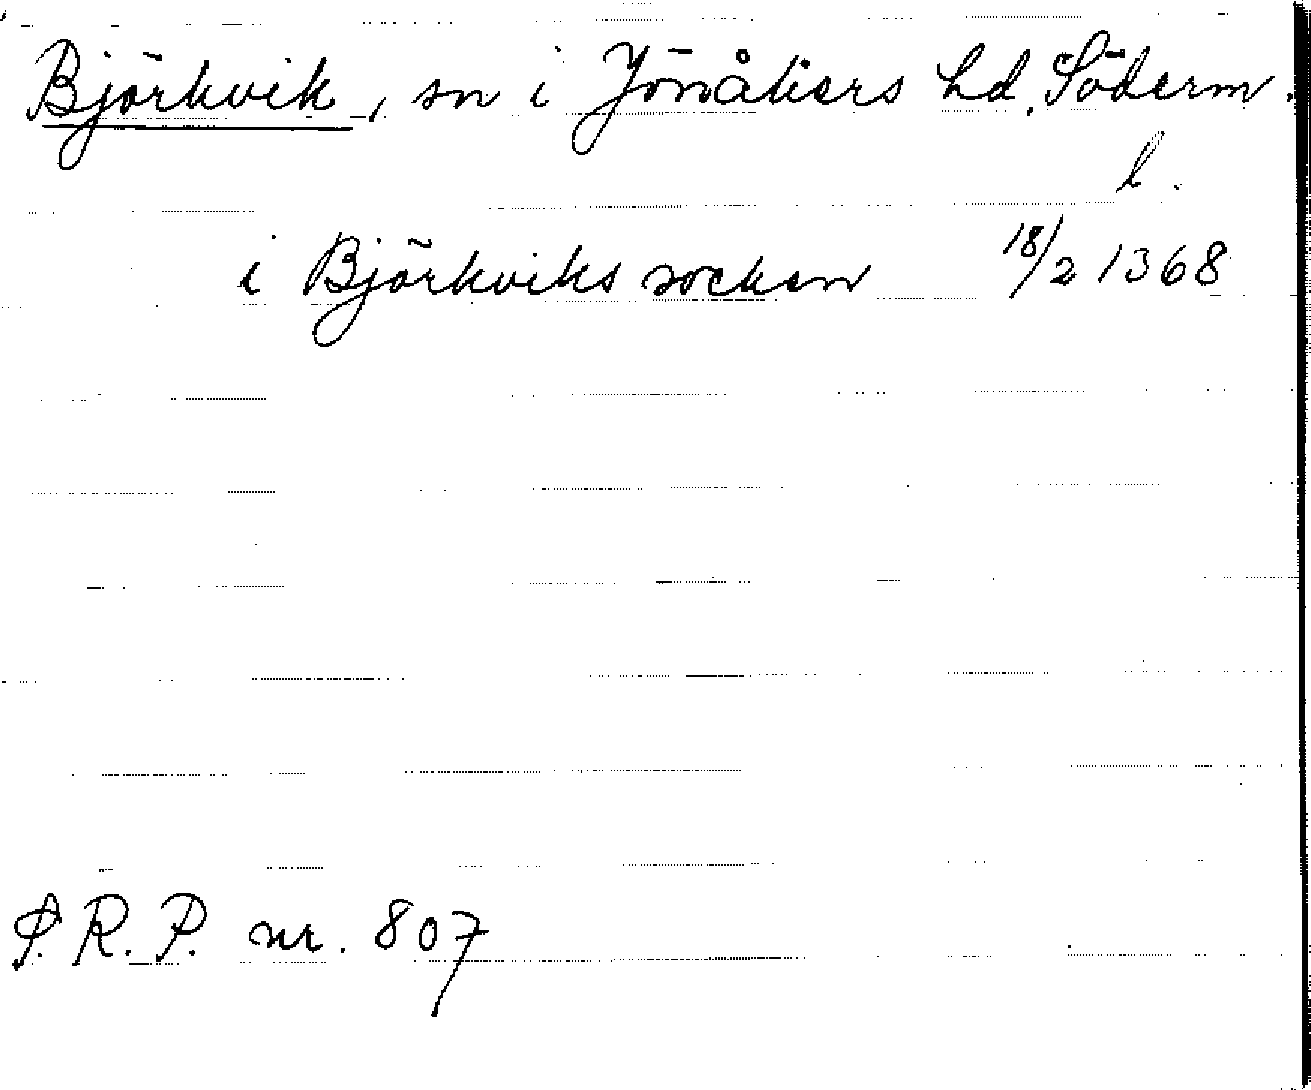 Björkvik, sn i Jönåkers hd, Söderm.
l.
i Björkviks socken 18/2 1368
S.R.P. nr. 807